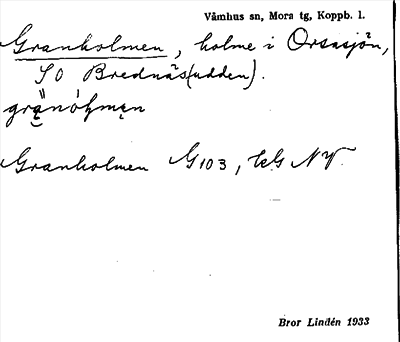 Våmhus sn, Mora tg, Koppb. l.
Granholmen, holme i Orsasjön,
SO Brednäs(udden).
Granholmen G103, hG NV.
Bror Lindén 1933